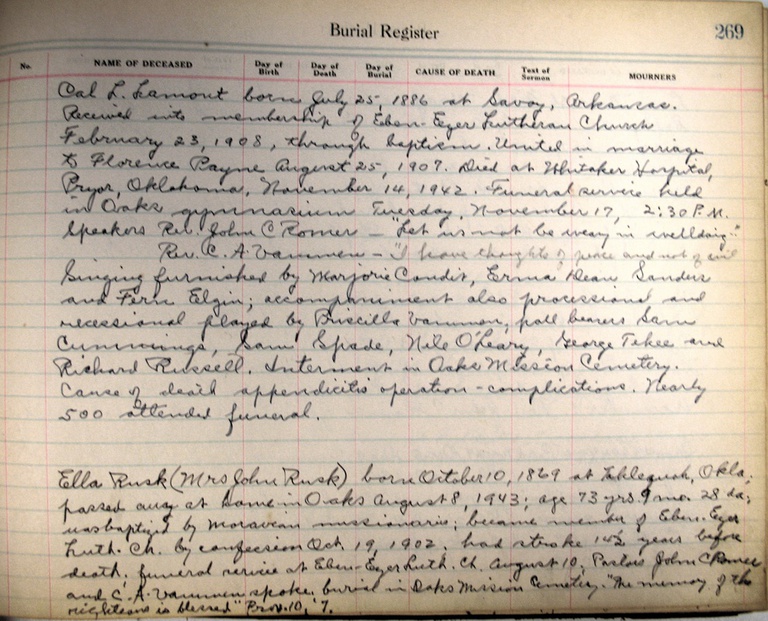 Burial Register
269
No. NAME OF DECEASED Day of Birth Day of Death Day of Burial CAUSE OF DEATH Text of Sermon MOURNERS
Cal L. Lamont born July 25, 1886 at Savoy, Arkansas.
Received into membership of Eben-Ezer Lutheran Church
February 23, 1908, through baptism. United in marriage
to Florence Payne August 25, 1907. Died at Whitaker Hospital,
Pryor, Oklahoma, November 14, 1942. Funeral service held
in Oaks gymnasium Tuesday, November 17, 2:30 P.M.
Speakers Rev. John C Romer – "Let us not be weary in welldoing."
Rev. C. A. Vammen – "I have thoughts of peace and not of evil
Singing furnished by Marjorie Condit, Erma Dean Sanders
and Fern Elgin; accompaniment also processional and
recessional played by Priscilla Vammen, pall bearers Sam
Cummings, Sam Spade, Nile O'Leary, George Tekee and
Richard Russell. Interment in Oaks Mission Cemetery.
Cause of death appendicitis operation – complications. Nearly
500 attended funeral.
Ella Rusk (Mrs John Rusk) born October 10, 1869 at Tahlequah, Okla;
passed away at home in Oaks August 8, 1943; age 73 yrs 9 mo. 28 da;
was baptized by Moravean missionaries; became member of Eben-Ezer
Luth. Ch. by confession Oct. 19, 1902. had stroke 1½ years before
death. funeral service at Eben-Ezer Luth. Ch. August 10, Pastors John C Romer
and C. A. Vammen spoke. burial in Oaks Mission Cemetery. "The memory of the
righteous is blessed" Prov. 10, 7.